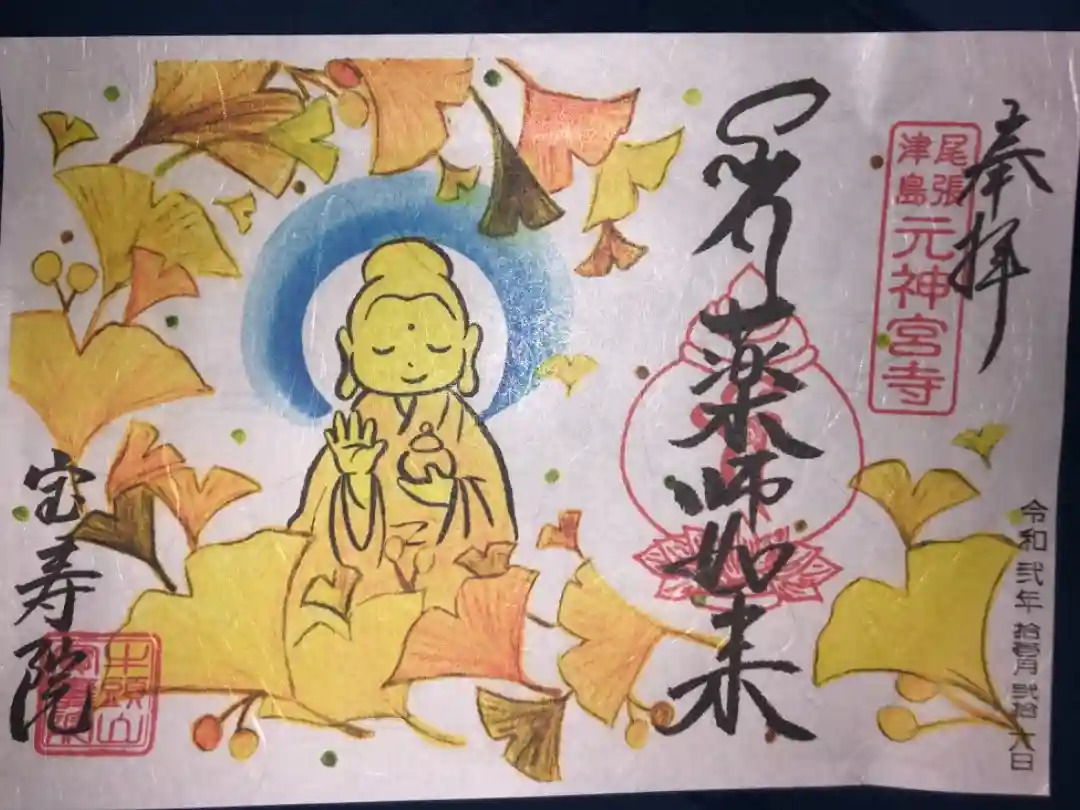 奉拝
尾張
津島
元神宮寺
令和弐年拾壱月弐拾六日
薬師如来
宝寿院
牛頭山